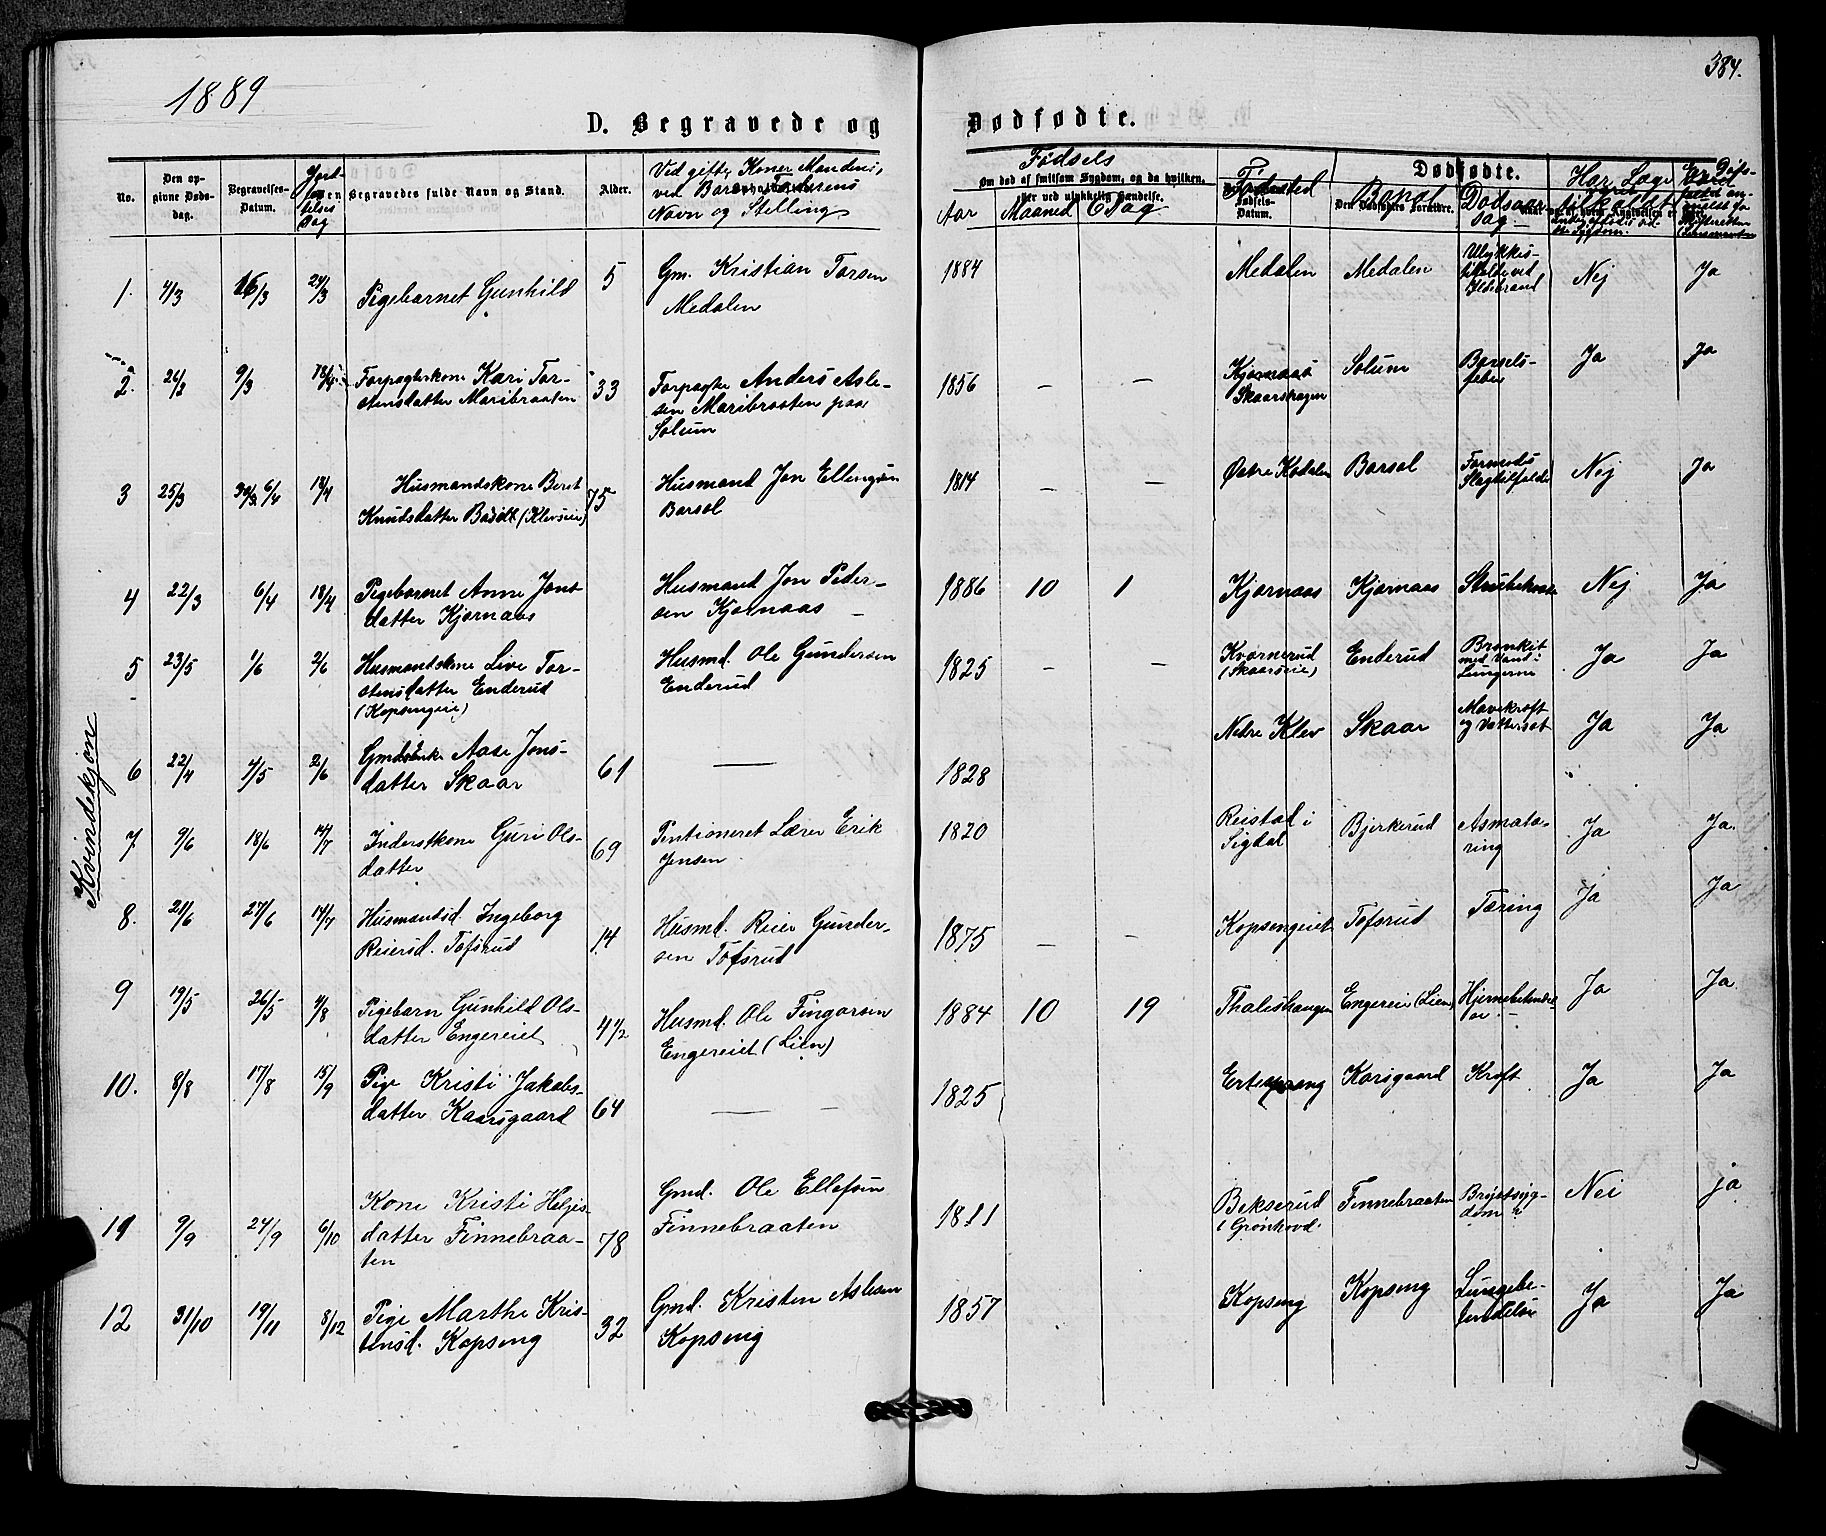 1889
384.
D. Begravede og Dødfødte.
No.
Den op-
givne Døds-
dag.
Begravelses-
Datum.
Begravedes fulde Navn og Stand.
Alder.
Ved gifte Koner Mandens,
ved Børn Faderens
Navn og Stilling
Fødsels
Om død af smitsom Sygdom, og da hvilken.
Aar
Maaned
Dag
Fødested
Dødfødte.
Bopæl
Dødsaar-
sag
Har Læge
tilkaldt
Kvindekjøn
1. 4/3 16/3 24/3 Pigebarnet Gunhild 5 Gm. Kristian Torsen
Medalen
1884 Medalen Medalen Ulykkes-
tilfælde ved
Ildebrand Nej Ja
2. 26/2 9/3 18/4 Forpagterkone Kari Tor-
stensdatter Maribraaten 33 Forpagter Anders Asle-
sen Maribraaten paa
Solum
1856 – – Kjørnaas
Skaarshagen Solum Barsels-
feber Ja Ja
3 25/3 30/3 6/4 18/4 Husmandskone Beret
Knudsdatter (Klevseie) 75 Husmand Jon Ellingsen
Borsol
1814 – – Østre Kodalen Borsol Formods
Slagtilfælde Nej Ja
4 22/3 6/4 18/4 Pigebarnet Anne Jons-
datter Kjørnaas Husmand Jon Peder-
sen Kjørnaas –
1886 10 1 Kjørnaas Kjørnaas Strubehoste Nej Ja
5 23/5 1/6 2/6 Husmandskone Live Tor-
stensdatter Enderud
(Kopsengeie) Husmd. Ole Gundersen
Enderud
1825 – – Kvernerud
(Skaarseie) Enderud Bronkit
med Vand i
Lungerne Ja Ja
6 22/4 4/5 2/6 Gmdsenke Aase Jons-
datter Skaar 61 –
1828 Nedre Klev Skaar Mavekræft
og Vattersot Ja Ja
7 9/6 18/6 14/7 Inderstkone Guri Ols-
datter 69 Pentioneret Lærer Erik
Jensen
1820 Reistad i
Sigdal Bjerkerud Asmatæ-
ring Ja Ja.
8. 21/6 27/6 14/7 Husmandsd. Ingeborg
Reiersd. Tofsrud 14 Husmd. Reier Gunder-
sen Tofsrud
1875 – – Kopsengeiet Tofsrud Tæring Ja Ja
9 19/5 26/5 4/8 Pigebarn Gunhild Ols-
datter Engereiet 4 1/2 Husmd. Ole Fingarsen
Engereiet (Lien)
1884 10 19 Thaleshaugen Engereie (Lien) Hjernebetændel-
se – Ja Ja
10. 8/8 17/8 15/9 Pige Kristi Jakobs-
datter Kaarsgaard 64 – –
1825 Ertesprang Korsgaard Kræft Ja Ja
11 9/9 24/9 6/10 Kone Kristi Helges-
datter Finnebraa-
ten 78 Gmd. Ole Ellefsen
Finnebraaten
1811 Bekserud
(Grønhovd) Finnebraaten Brystsyg-
dom Nei ja
12 31/10 19/11 8/12 Pige Marthe Kris-
tensd. Kopseng 32 Gmd. Kristen Aslesen
Kopseng
1857 Kopseng Kopseng Lungebe-
tændelse Ja Ja